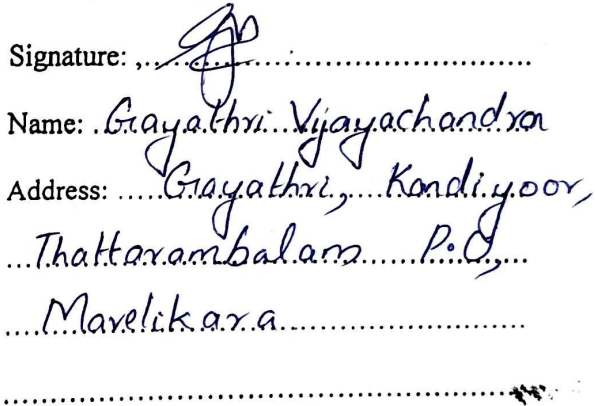 Signature: ,..................:....................................
Name: .Gayathri Vijayachandran
Address: .....Gayathri, Kandiyoor,
...Thattarambalam P.O,...
....Mavelikara...................................